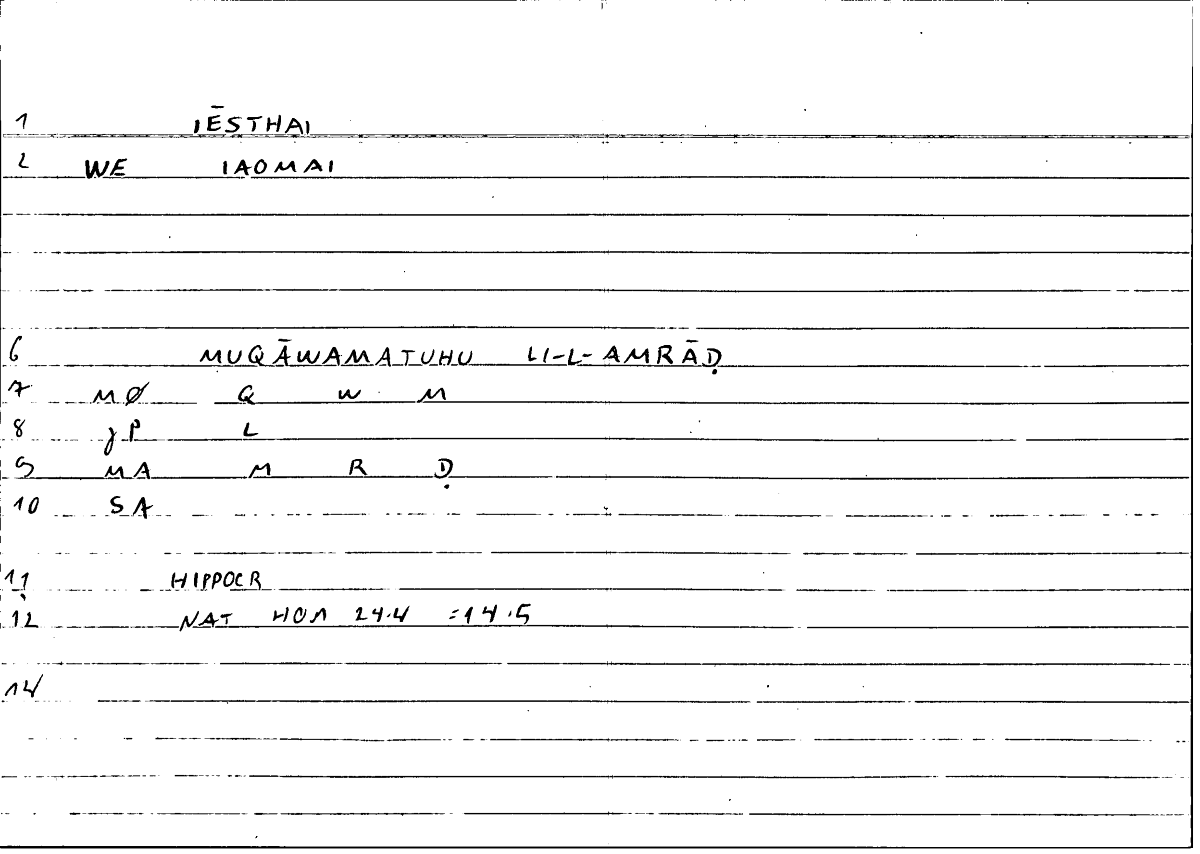 1 IĒSTHAI
2 WE IAOMAI
6 MUQĀWAMATUHU LI-L-AMRĀḌ
7 MØ Q W M
8 JP L
9 MA M R Ḍ
10 SA
11 HIPPOCR
12 NAT HOM 24.4 =14.5
14